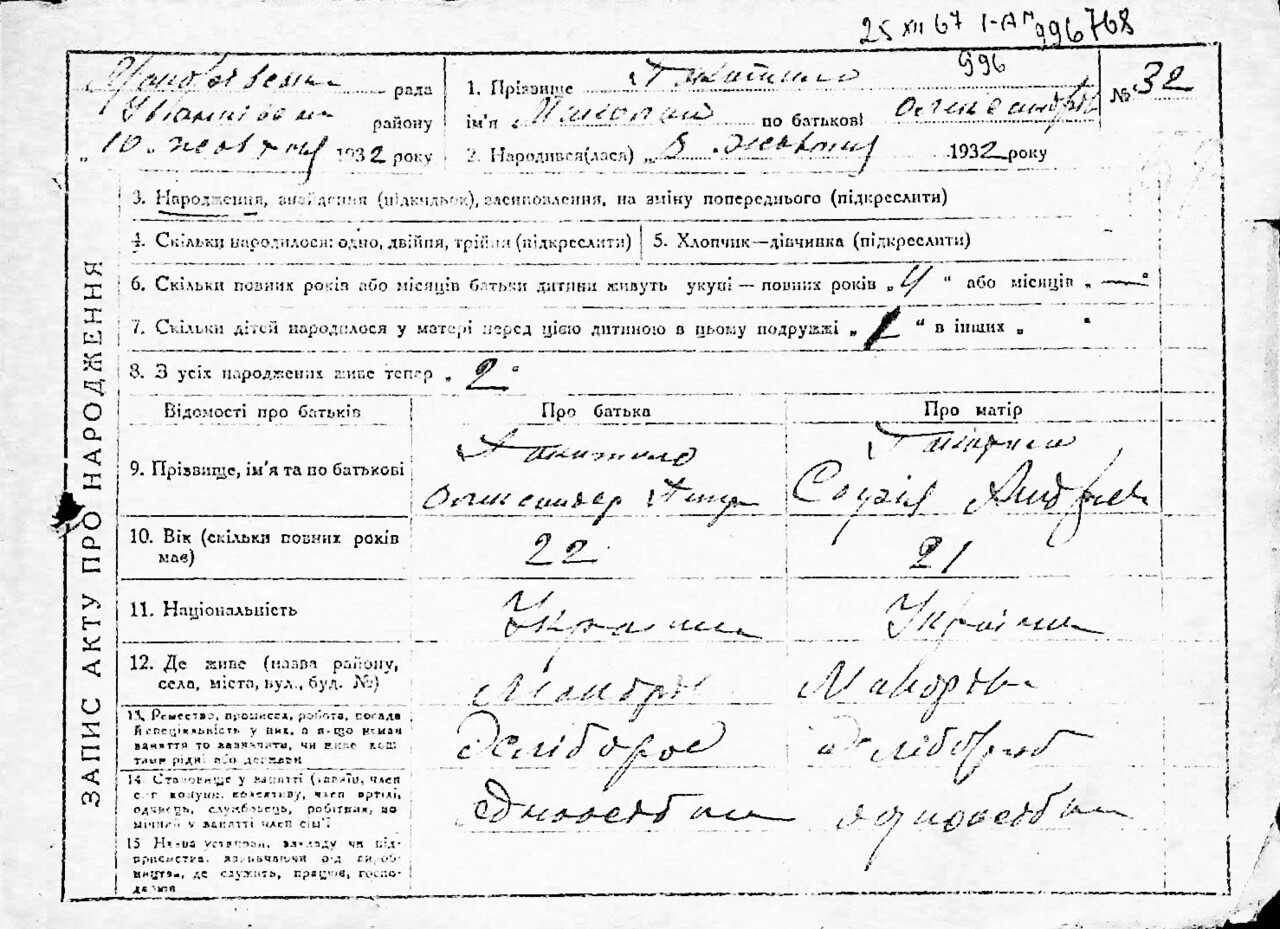 25 XII 67 І-АП 996768
996
рада
1. Прізвище
№ 32
району
ім'я Микола по батькові Олександров
„10„ жовтня 1932 року
2. Народився(лася) „ 8 „ жовтня 1932 року
3. Народження, знайдення (підкидьок), засиновлення, на зміну попереднього (підкреслити)
4. Скільки народилося: одно, двійня, трійня (підкреслити)
5. Хлопчик—дівчинка (підкреслити)
6. Скільки повних років або місяців батьки дитини живуть укупі — повних років „ 4 “ або місяців „ — “
7. Скільки дітей народилося у матері перед цією дитиною в цьому подружжі „ 1 “ в інших „ “
8. З усіх народжених живе тепер „ 2 “
Відомості про батьків
Про батька
Про матір
9. Прізвище, ім'я та по батькові
Олександер
Софія Андріев
10. Вік (скільки повних років має)
22
21
11. Національність
Украін
Україн
12. Де живе (назва району, села, міста, вул., буд. №)
13. Ремество, промисел, робота, посада й спеціяльність у них, а якщо немає заняття то зазначити, чи живе коштами рідні або держави
Хлібороб
Хлібороб
14. Становище у занятті (хазяїн, член с.-г комуни, колективу, член артілі, одинець, службовець, робітник, помічний у занятті член сім'ї
одноосібн
одноосібн
15 Назва установи, закладу чи підприємства, зазначаючи рід виробництва, де служить, працює, господарює
ЗАПИС АКТУ ПРО НАРОДЖЕННЯ